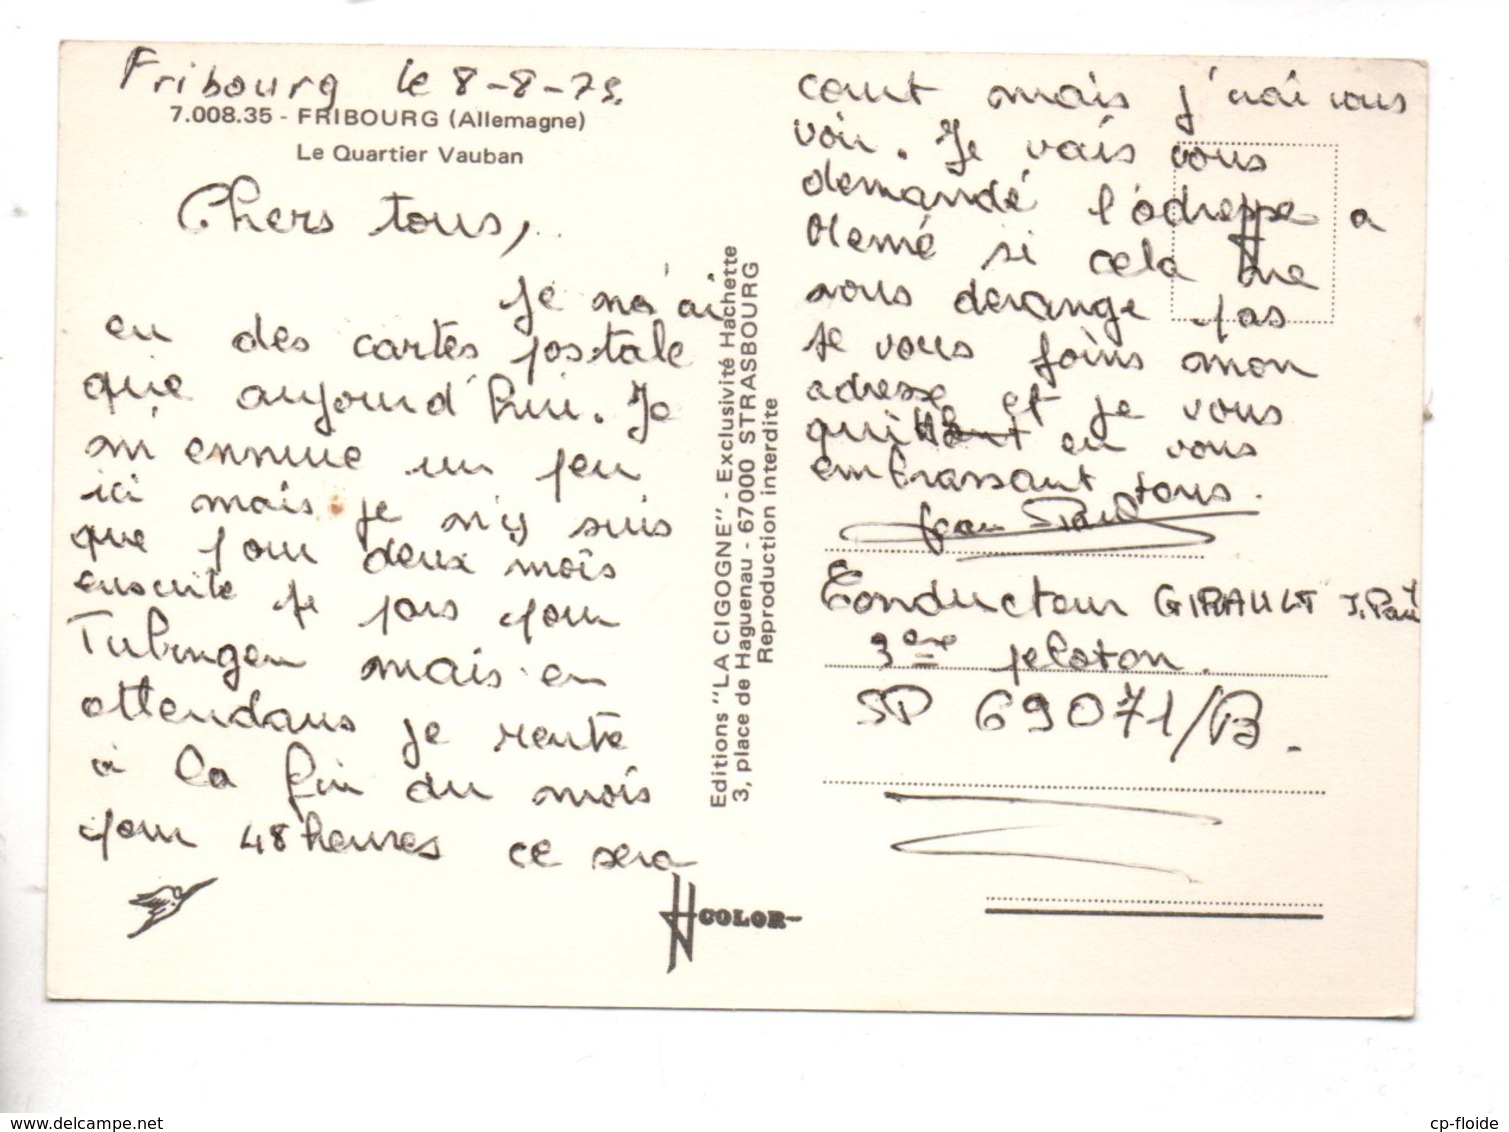 Fribourg le 8-8-75.
7.008.35 - FRIBOURG (Allemagne)
Le Quartier Vauban
Chers tous,
Je n'ai
eu des cartes postale
que aujourd'hui. Je
m'ennuie un peu
ici mais je n'y suis
que pour deux mois
ensuite je pars pour
Tubingen mais en
attendans je rentre
à la fin du mois
pour 48 heures ce sera
Editions "LA CIGOGNE" - Exclusivité Hachette
3, place de Haguenau - 67000 STRASBOURG
Reproduction interdite
COLOR
court mais j'irai vous
voir. Je vais vous
demandé l'adresse a
Mémé si cela ne
vous derange pas
Je vous joins mon
adresse et je vous
quitte en vous
embrassant tous.
Jean Paul
Conducteur GIRAULT J. Paul
3eme peloton.
SP 69071/B.
www.delcampe.net
cp-floide